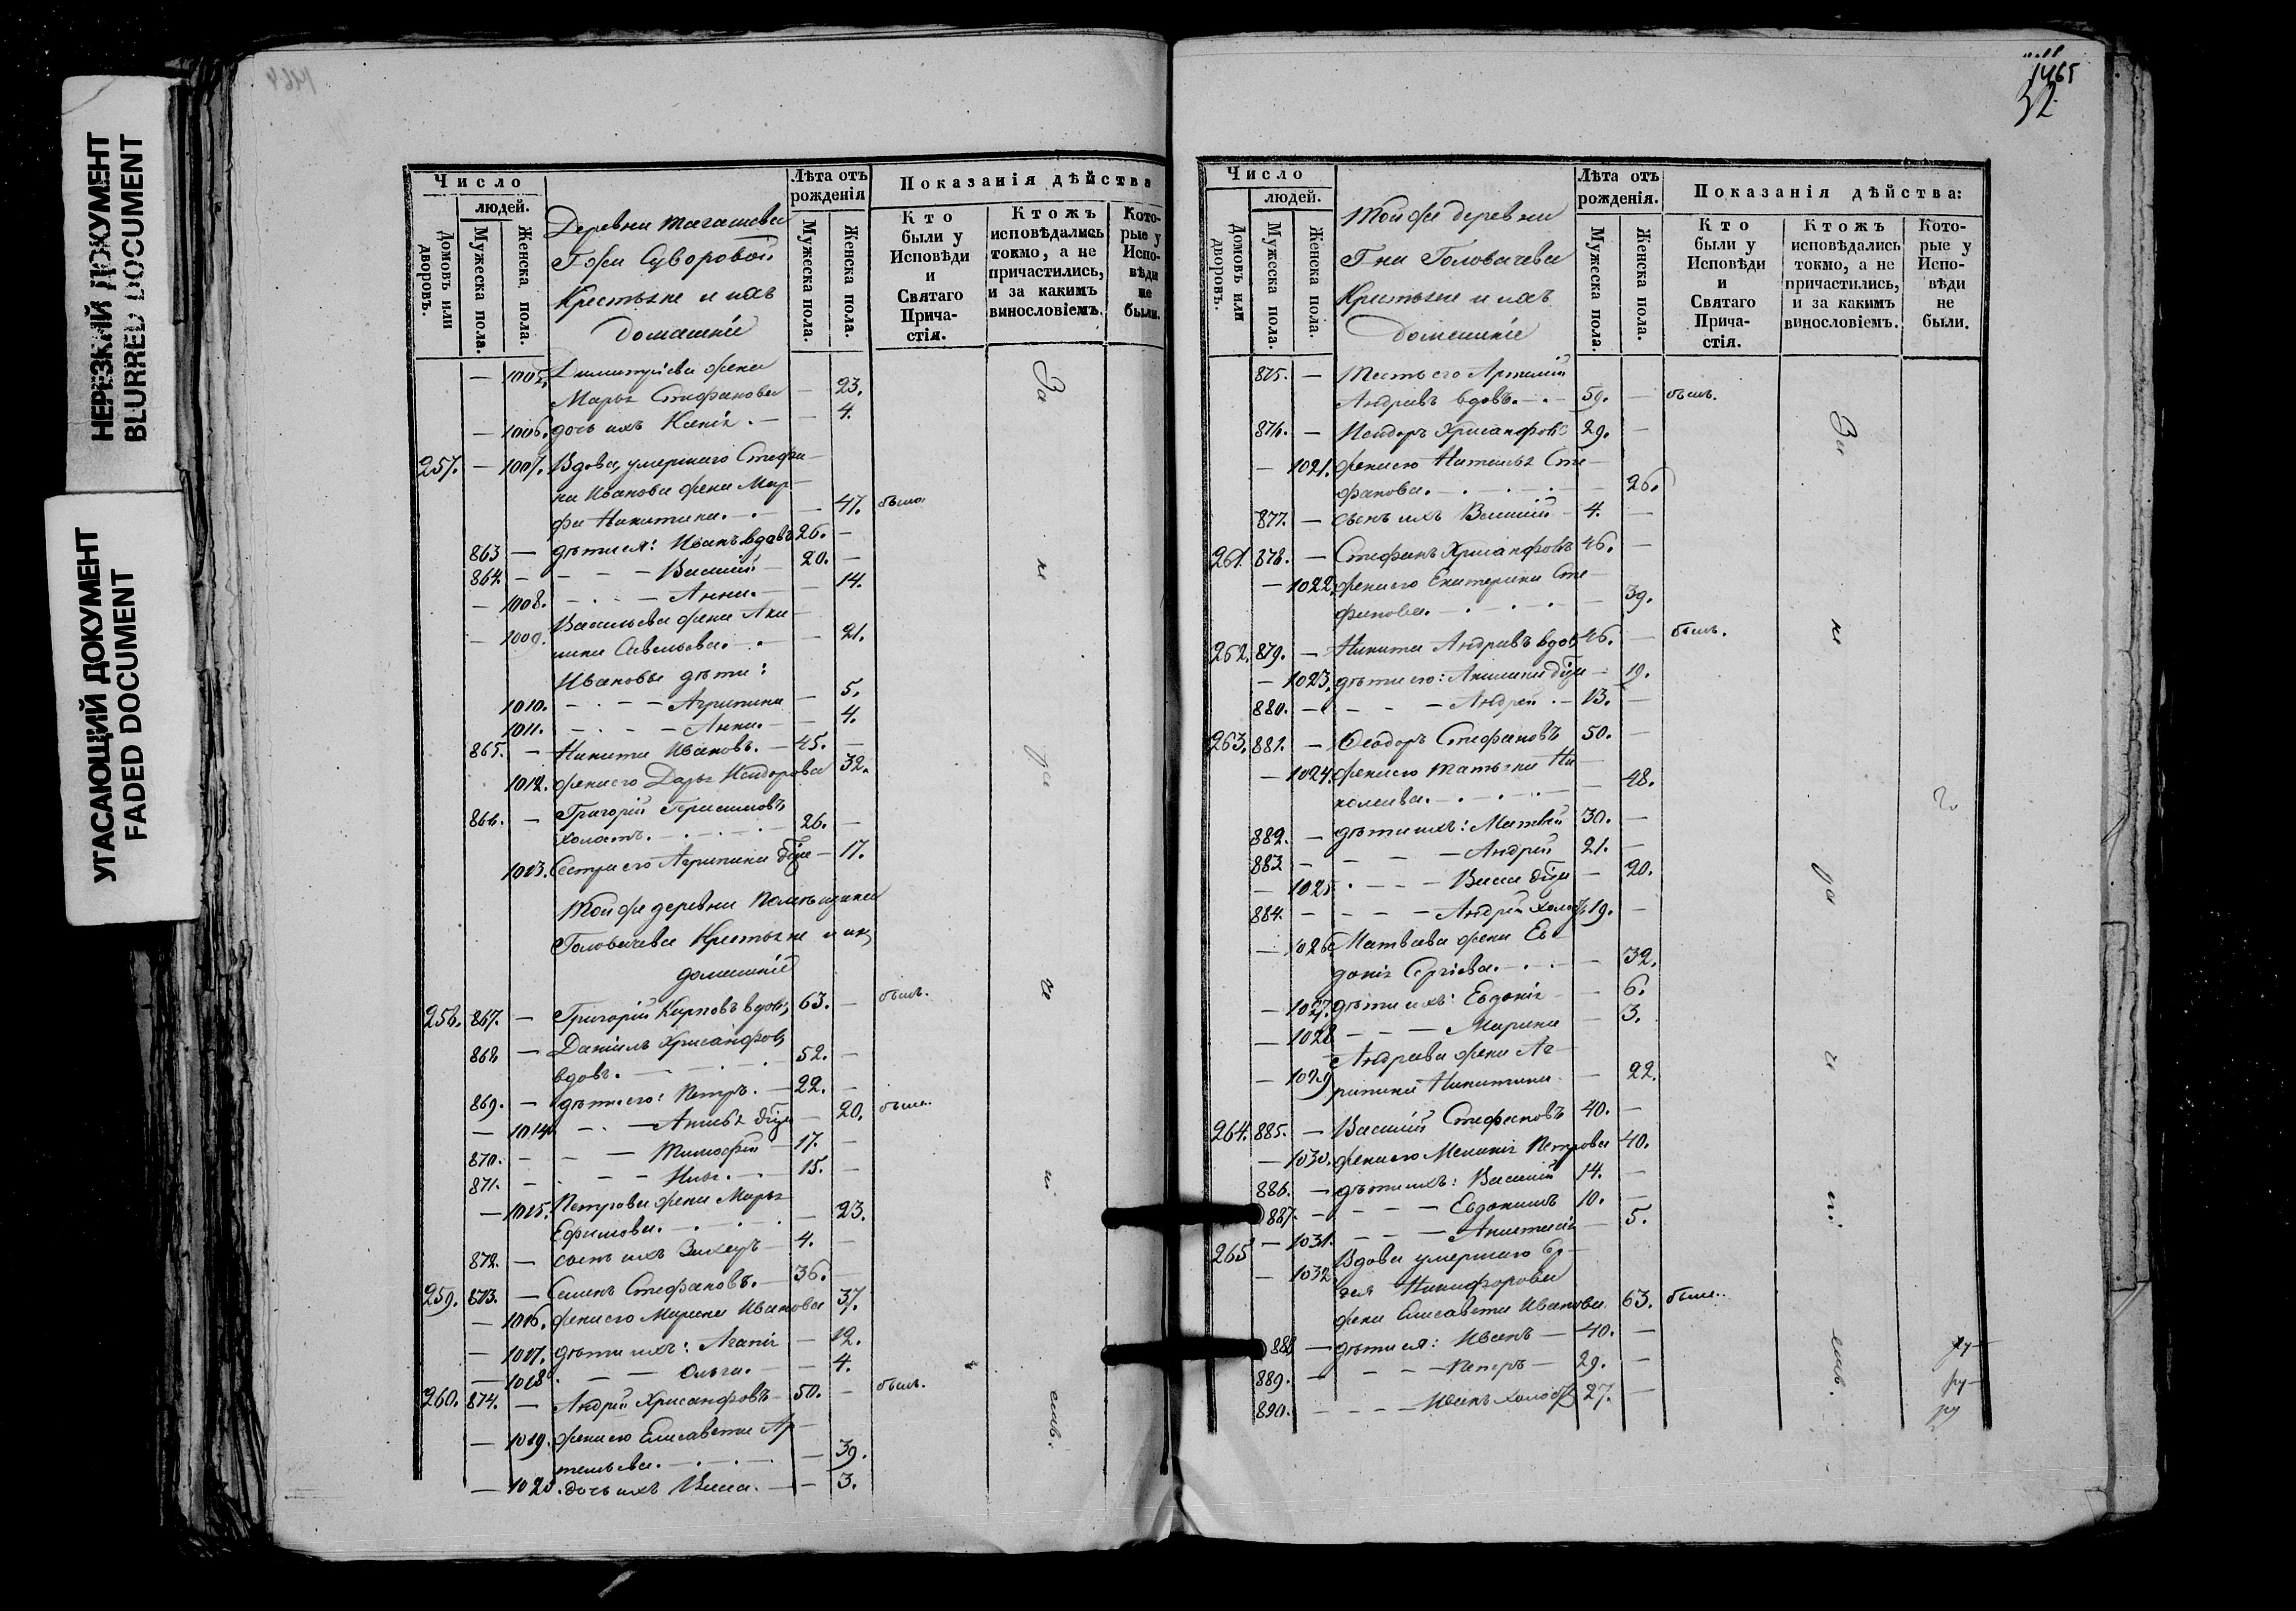 НЕРЕЗКИЙ ДОКУМЕНТ
BLURRED DOCUMENT
УГАСАЮЩИЙ ДОКУМЕНТ
FADED DOCUMENT
Число
людей.
Домовъ или дворовъ.
Мужеска пола.
Женска пола.
Деревни
Гжи Суворовой
Крестьяне и ихъ
домашніе
Лѣта отъ рожденія
Мужеска пола.
Женска пола.
Показанія дѣйства
Кто были у Исповѣди и Святаго Прича-стія.
Ктожъ исповѣдались токмо, а не причастились, и за какимъ винословіемъ.
Кото-рые у Испо-вѣди не были.
— 1005. Димитріева жена
Марья Стефанова — 23.
— 1006. дочь ихъ — 4.
257. — 1007. Вдова, умершаго Стефа-
на Иванова жена Мар-
фа Никитина. — 47. была
863 — дѣти ея: Иванъ вдовъ 26. —
864. — Василій — 20. —
— 1008. — Анна. — 14.
— 1009. Васильева жена Аки-
лина Савельева. — 21.
Ивановы дѣти:
1010. — Агрипина — 5.
1011. — Анна. — 4.
865. — Никита Ивановъ. — 45. —
1012. жена его Дарья Исидорова 32.
866. — Григорій Герасимовъ
холостъ. — 26. —
1013. Сестра его Агрипина — 17.
Той же деревни Помѣщика
Головачева Крестьяне и ихъ
домашніе
258. 867. — Григорій Карповъ вдовъ 63. — былъ.
868 — Даніилъ Хрисанфовъ
вдовъ. — 52. —
869. — дѣти его: Петръ. — 22. —
— 1014. — 20. была.
870. — Тимофей — 17. —
871. — Илья. — 15. —
— 1015. Петрова жена Марья
Ефимова. — 23.
872. — сынъ ихъ Захаръ — 4. —
259. 873. — Семенъ Стефановъ. — 36. —
— 1016. жена его Марина Иванова 37.
— 1017. дѣти ихъ: Агапія — 12.
— 1018. — Ольга. — 4.
260. 874. — Андрей Хрисанфовъ — 50. — былъ.
— 1019. жена его Елисавета Ар-
темьева. — 39.
— 1020. дочь ихъ Васса. — 3.
За
не
ра
че
ні
емъ.
1465
52
Число
людей.
Домовъ или дворовъ.
Мужеска пола.
Женска пола.
Той же деревни
Г-на Головачева
Крестьяне и ихъ
домашніе
Лѣта отъ рожденія.
Мужеска пола.
Женска пола.
Показанія дѣйства:
Кто были у Исповѣди и Святаго Прича-стія.
Ктожъ исповѣдались токмо, а не причастились, и за какимъ винословіемъ.
Кото-рые у Испо-вѣди не были.
875. — Тесть его Артемій
Андреевъ вдовъ. — 59. — былъ.
876. — Исидоръ Хрисанфовъ 29. —
— 1021. жена его Наталья Сте-
фанова. — 26.
877. — сынъ ихъ Василій — 4. —
261. 878. — Стефанъ Хрисанфовъ 46. —
— 1022. жена его Екатерина Сте-
фанова. — 39.
262. 879. — Никита Андреевъ вдовъ 46. — былъ.
— 1023. дѣти его: Акилина — 19.
880. — Андрей. — 13. —
263. 881. — Ѳеодоръ Стефановъ 50. —
— 1024. жена его Татьяна Ни-
колаева. — 48.
882. — дѣти ихъ: Матвей 30. —
883 — Андрей 21. —
— 1025 — Васса — 20.
884. — Андрей холостъ 19. —
— 1026 Матвеева жена Ев-
докія Сергіева. — 32.
— 1027. дѣти ихъ: Евдокія — 6.
— 1028 — Марина — 3.
Андреева жена Аг-
— 1029 рипина Никитина — 22.
264. 885. — Василій Стефановъ 40. —
— 1030. жена его Меланія Петрова 40.
886. — дѣти ихъ: Василій 14. —
887. — Евдокимъ 10. —
— 1031. — Анастасія — 5.
265 Вдова умершаго
— 1032 Никифорова
жена Елисавета Иванова. 63. была.
888 — дѣти ея: Иванъ — 40. —
889. — Петръ — 29. —
890. — Иванъ холостъ 27. —
За
не
ра
че
ні
емъ.